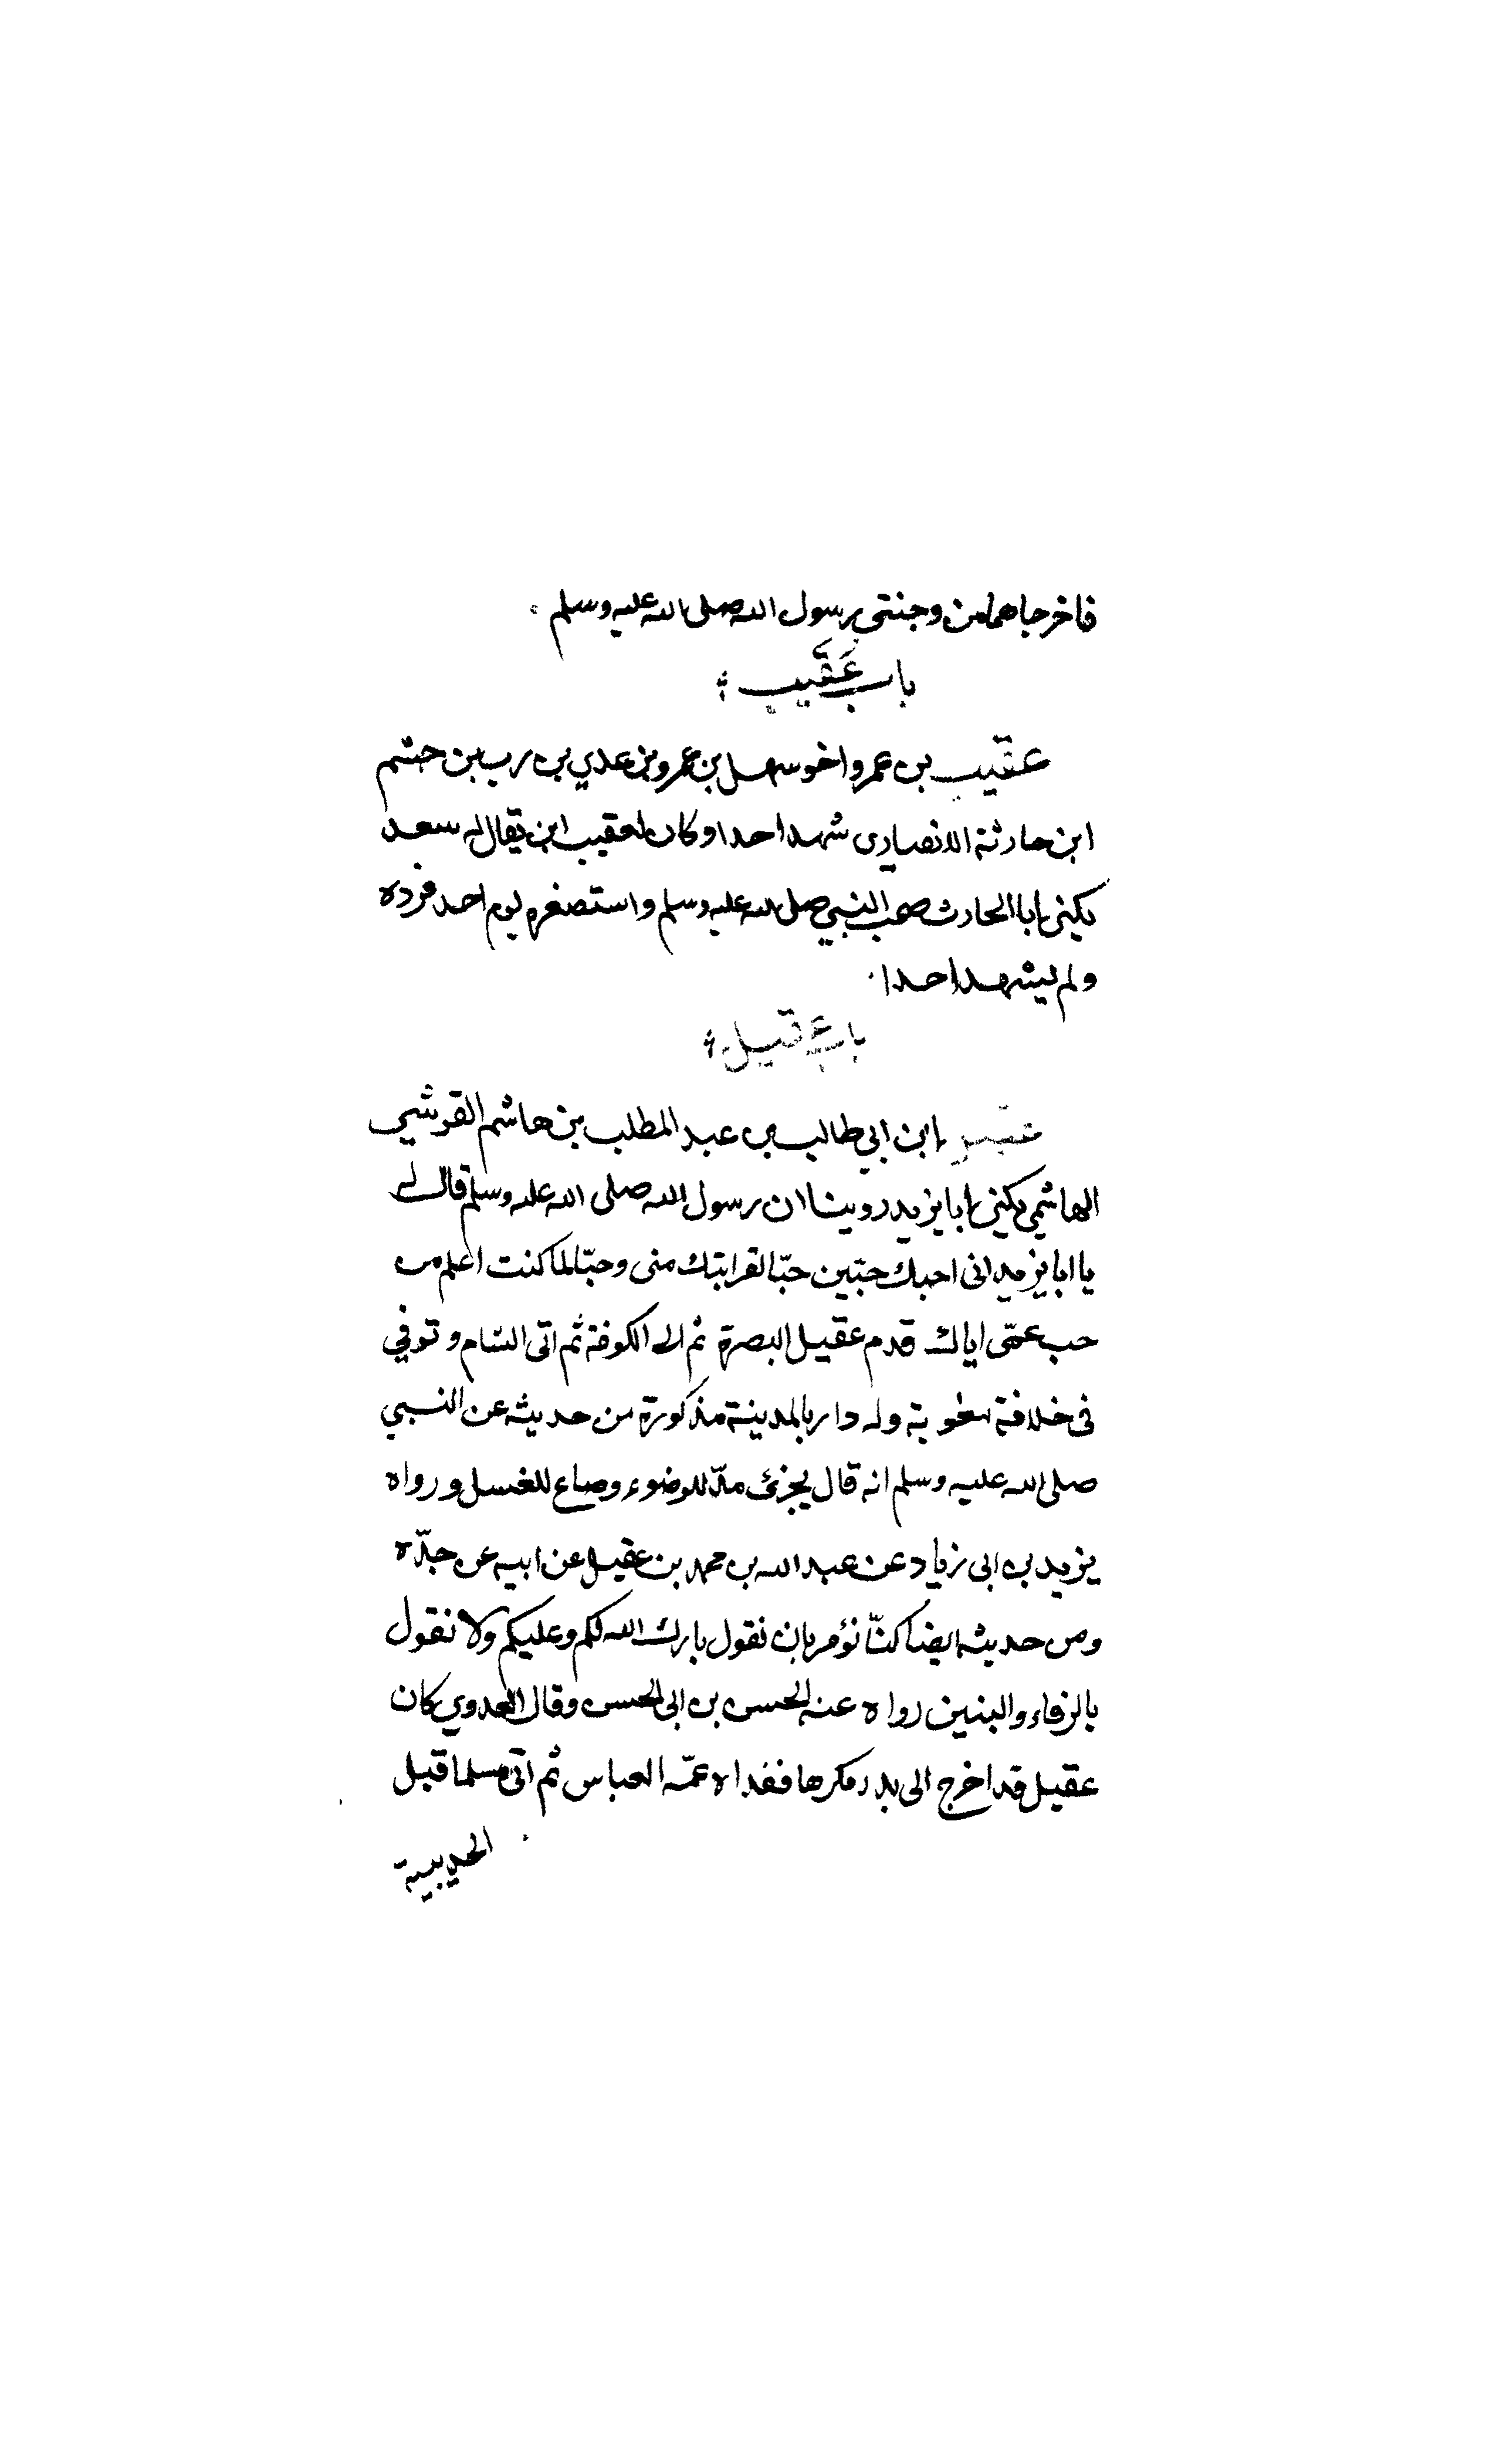 فاخرجاهما من وجنتي رسول الله صلى الله عليه وسلم
باب عَقيب
عقيب بن عمرو اخو سهل بن عمرو بن عدي بن رب بن جشم
ابن حارثة الانصارى شهد احدا وكان لعقيب ابن يقال له سعد
يكنى ابا الحارث صحب النبي صلى الله عليه وسلم واستصغره يوم احد فرده
ولم يشهد احدا
باب عقيل
عقيل ابن ابي طالب بن عبد المطلب بن هاشم القرشي
الهاشمي يكنى ابا يزيد روينا ان رسول الله صلى الله عليه وسلم قال له
يا ابا يزيد انى احبك حبّين حبّا لقرابتك منى وحبّا لما كنت اعلم من
حب عمّى اياك قدم عقيل البصرة ثم الى الكوفة ثم اتى الشام وتوفي
فى خلافة معوية وله دار بالمدينة مذكورة من حديثه عن النبي
صلى الله عليه وسلم انه قال يجزئ مدّ للوضوء وصاع للغسل ورواه
يزيد بن ابى زياد عن عبد الله بن محمد بن عقيل عن ابيه عن جدّه
ومن حديثه ايضا كنّا نؤمر بان نقول بارك الله لكم وعليكم ولا نقول
بالرفاء والبنين رواه عنه الحسن بن ابى الحسن وقال العدوي كان
عقيل قد اخرج الى بدر مكرها ففداه عمّه العباس ثم اتى مسلما قبل
الحديبية